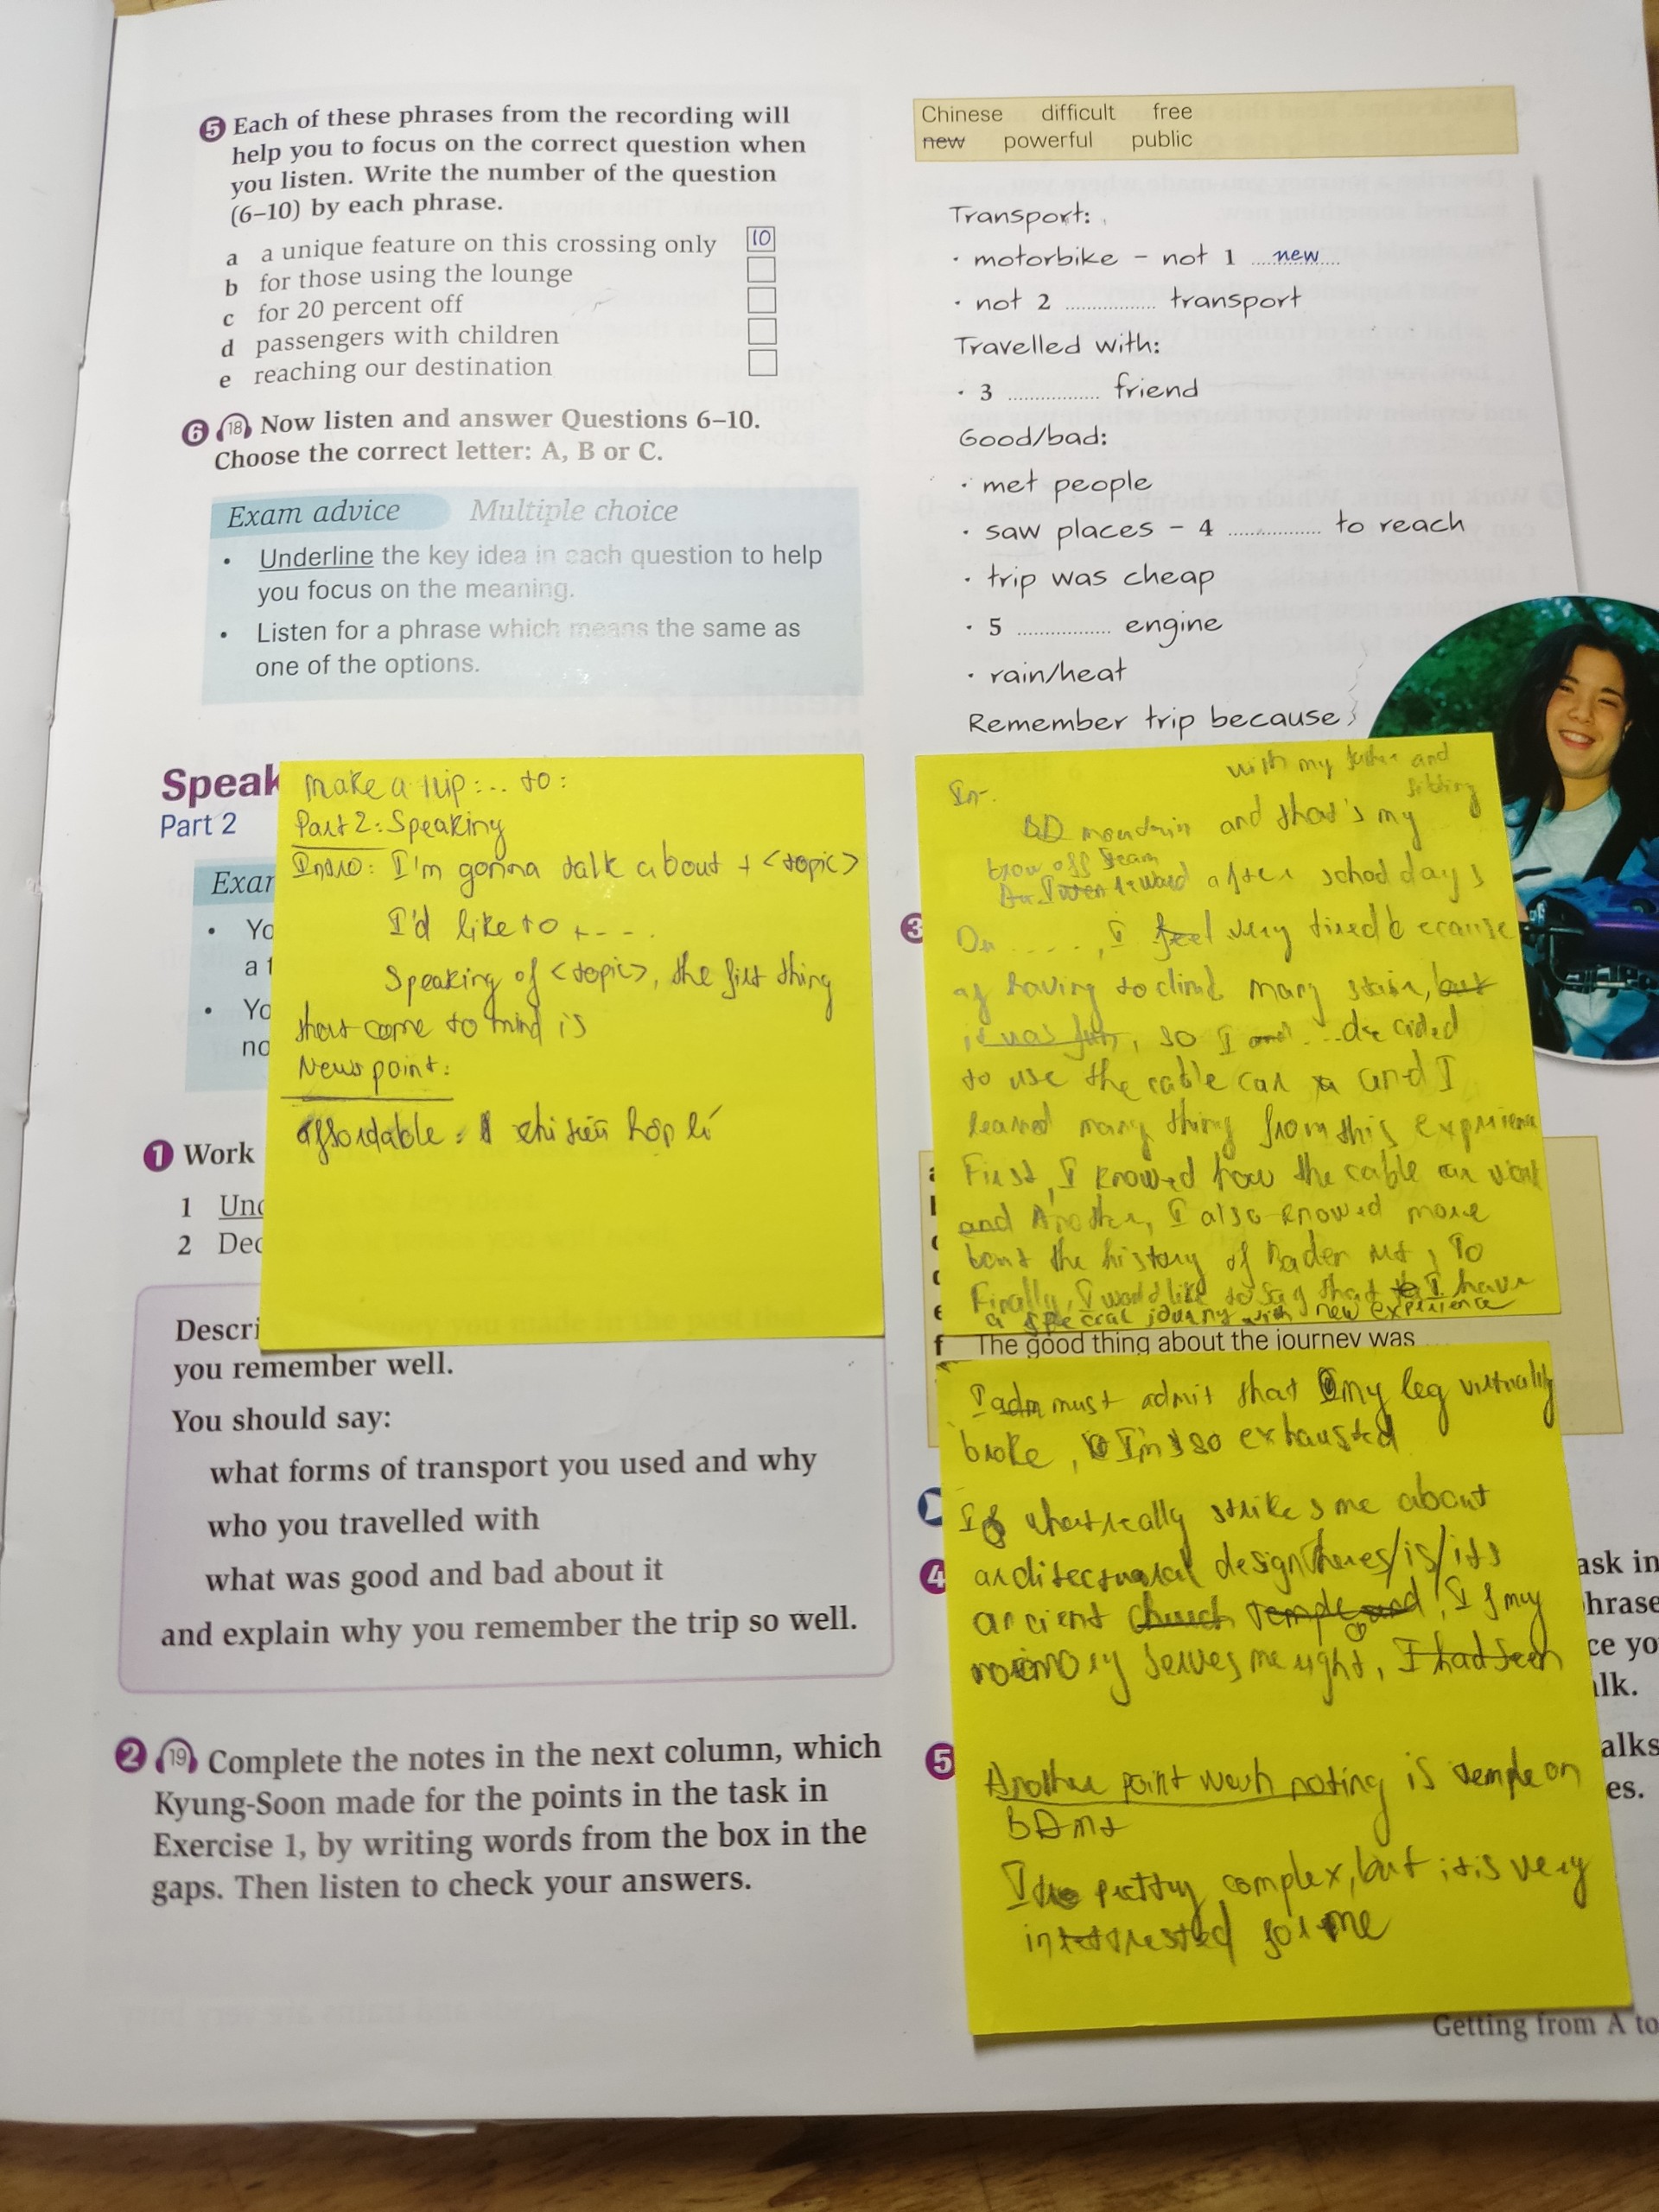 5 Each of these phrases from the recording will
help you to focus on the correct question when
you listen. Write the number of the question
(6–10) by each phrase.
a a unique feature on this crossing only 10
b for those using the lounge
c for 20 percent off
d passengers with children
e reaching our destination
6 18 Now listen and answer Questions 6–10.
Choose the correct letter: A, B or C.
Exam advice Multiple choice
• Underline the key idea in each question to help
you focus on the meaning.
• Listen for a phrase which means the same as
one of the options.
Speak
Part 2
Exam
• Yo
a t
• Yo
no
make a trip:... to:
Part 2: Speaking
Intro: I'm gonna talk about + <topic>
I'd like to + - - - .
Speaking of <topic>, the first thing
that come to mind is
News point:
affordable = chi tiêu hợp lí
1 Work
1 Und
2 Dec
Descri
you remember well.
You should say:
what forms of transport you used and why
who you travelled with
what was good and bad about it
and explain why you remember the trip so well.
2 19 Complete the notes in the next column, which
Kyung-Soon made for the points in the task in
Exercise 1, by writing words from the box in the
gaps. Then listen to check your answers.
Chinese difficult free
new powerful public
Transport:
• motorbike – not 1 ....new....
• not 2 .............. transport
Travelled with:
• 3 .............. friend
Good/bad:
• met people
• saw places – 4 .............. to reach
• trip was cheap
• 5 .............. engine
• rain/heat
Remember trip because
with my father and
BD mountain and that's my
after school days
On ....., I feel very tired because
of having to climb many stair, but
it was fun, so I and ... decided
to use the cable car and I
learned many thing from this expirience
First, I knowed how the cable car work
and Another, I also knowed more
bout the history of Baden Mt, To
Finally, I would like to say that I have
a special journy with new expirience
3
f The good thing about the journey was
I adm must admit that my leg virtually
broke, I'm so exhausted
what really strikes me about
architectural design theres/is/its
ancient church temple and, If my
memory serves me right, I had seen
Another point worth noting is temple on
BD mt
pretty complex, but it is very
interested for me
4
ask in
hrase
ce yo
alk.
5
alks
es.
Getting from A to